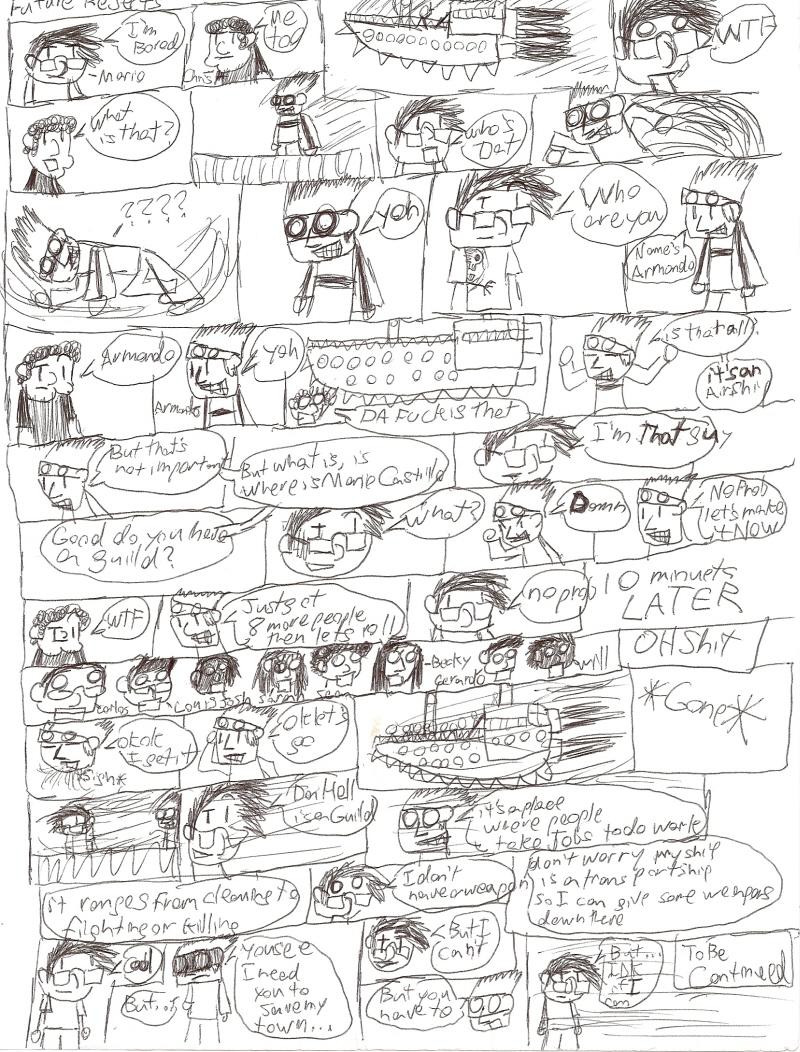 Future Rejects
I'm
Bored
-Mario
me
too
Chris
WTF
What
is that?
who's
Dat
????
yah
Who
are you
Name's
Armando
Armando
Armando
yah
DA Fuck is that
is that all?
it's an
Airship
But that's
not important
But what is, is
where is Mario Castillo
I'm That guy
Good do you have
a guild?
What?
Damn
No Prob
let's make
it NOW
WTF
Just get
8 more people
then lets roll
no prob
10 minuets
LATER
OH Shit
Carlos
Chris
Josh
Sarah
Sean
-Becky
Gerardo
will
*Gone*
ok ok
I get it
*sigh*
Ok let's
go
Da Hell
is a Guild
it's a place
where people
take Jobs to do work
it ranges from cleaning to
fighting or killing
I don't
have a weapon
don't worry my ship
is a transport ship
so I can give some weapons
down there
cool
But...
You see
I need
you to
save my
town...
But I
can't
But you
have to
But...
IDK
if I
can
To Be
Continued